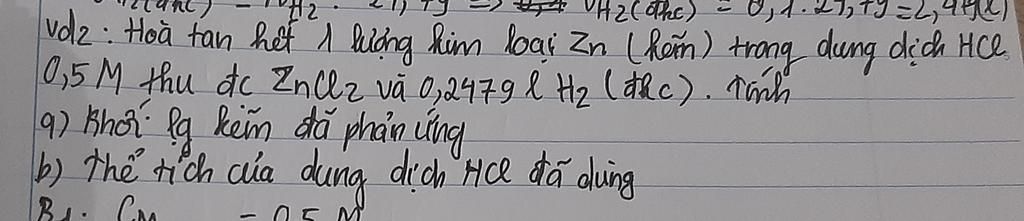 VH2(đkc) = 0,1.24,79 = 2,479(l)
Vd2: Hoà tan hết 1 lượng kim loại Zn (kẽm) trong dung dịch HCl
0,5M thu đc ZnCl2 và 0,2479 l H2 (đkc). Tính
a) Khối lg kẽm đã phản ứng
b) Thể tích của dung dịch HCl đã dùng
= 0,5 M